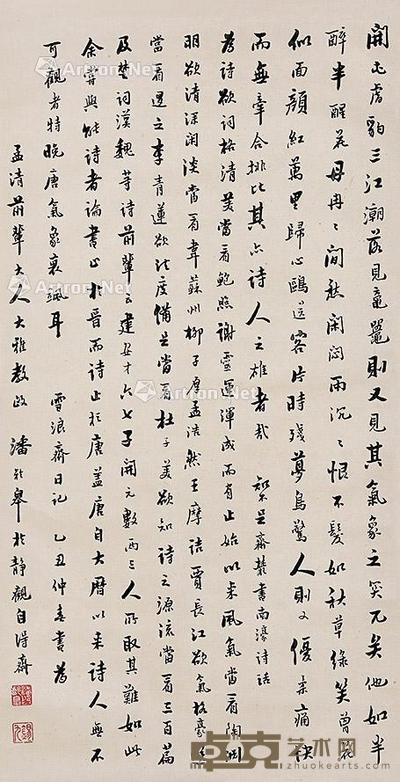 開屯虜豹三江潮落見黿鼉則又見其氣象之突兀矣他如半
醉半醒花冉冉〻間愁閑悶雨沉〻恨不髮如秋草綠笑曾花
似面顏紅萬里歸心鷗送客片時殘夢鳥驚人則又優柔痛快
而無牽合排比其亦詩人之雄者哉 繫是齋叢書南濠詩話
為詩欲詞格清美當看鮑照謝靈運渾成而有止始以來風氣當看陶淵
明欲清深閑淡當看韋蘇州柳子厚孟浩然王摩詰賈長江欲氣格豪逸
當看退之李青蓮欲法度備足當看杜子美欲知詩之源流當看三百篇
及楚詞漢魏等詩前輩云建安才六七子開元數兩三人所取其難如此
余嘗與能詩者論書止於晉而詩止於唐蓋唐自大曆以來詩人無不
可觀者特晚唐氣象衰颯耳 雪浪齋日記 乙丑仲春書為
孟清前輩大人大雅教政 潘齡皋於靜觀自得齋
卓克艺术网
zhuokearts.com